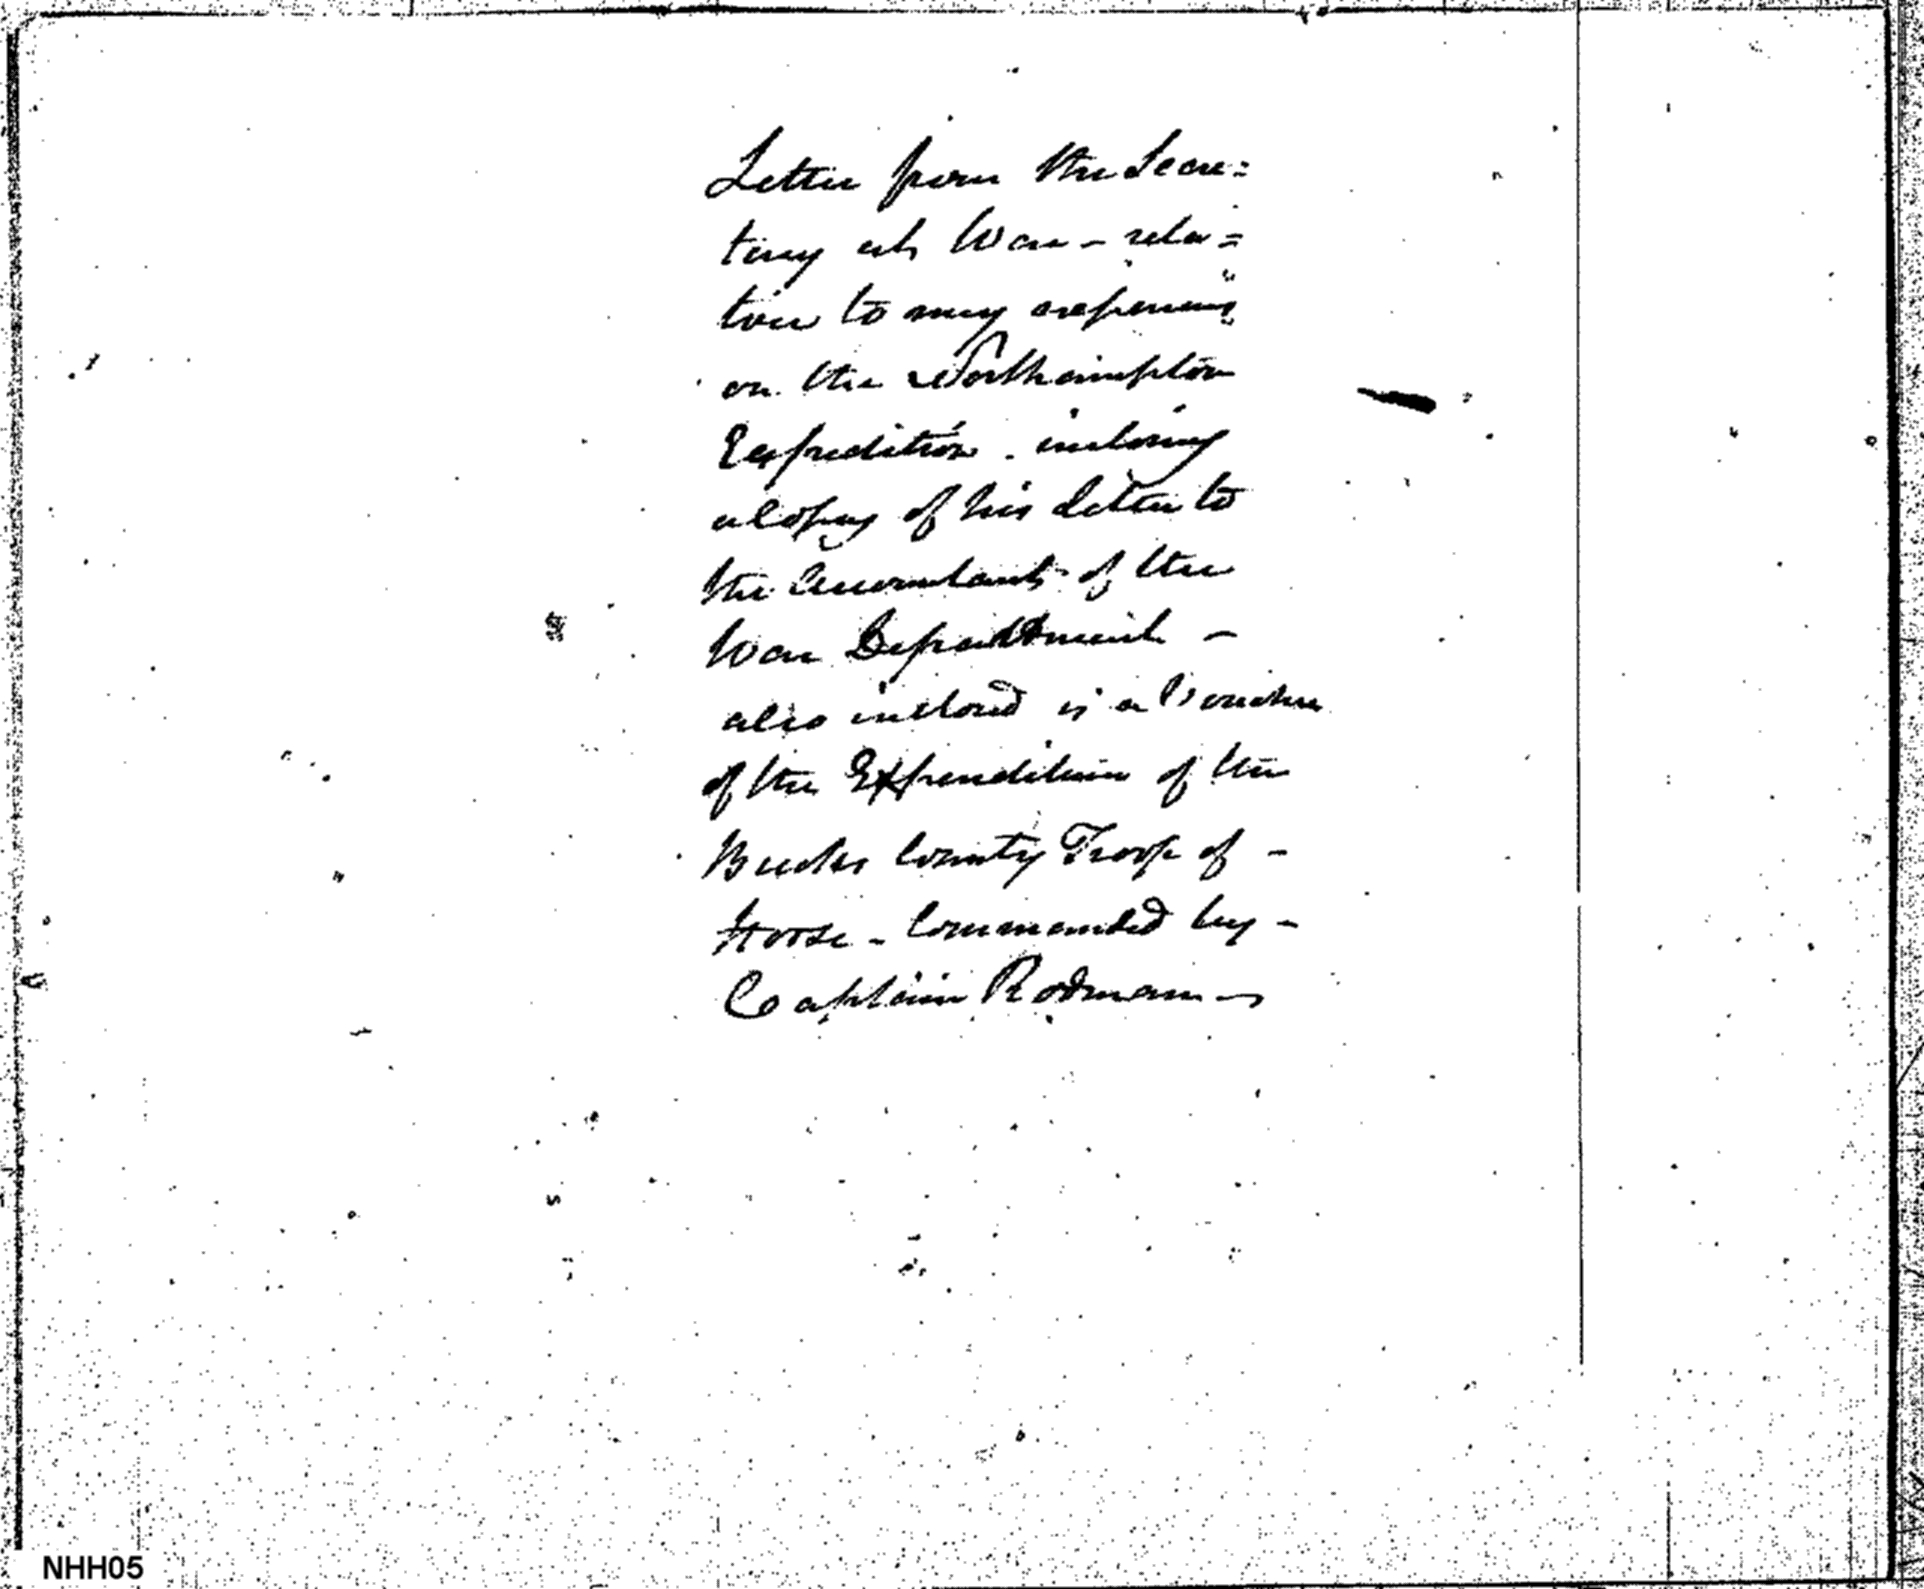 Letter from the Secre=
tary at War - rela=
tive to my expenses
on the Northampton
Expedition - inclosing
a Copy of his Letter to
the Accountant of the
War Department -
also inclosed is a Voucher
of the Expenditure of the
Bucks County Troop of -
Horse - Commanded by -
Captain Rodman -
NHH05